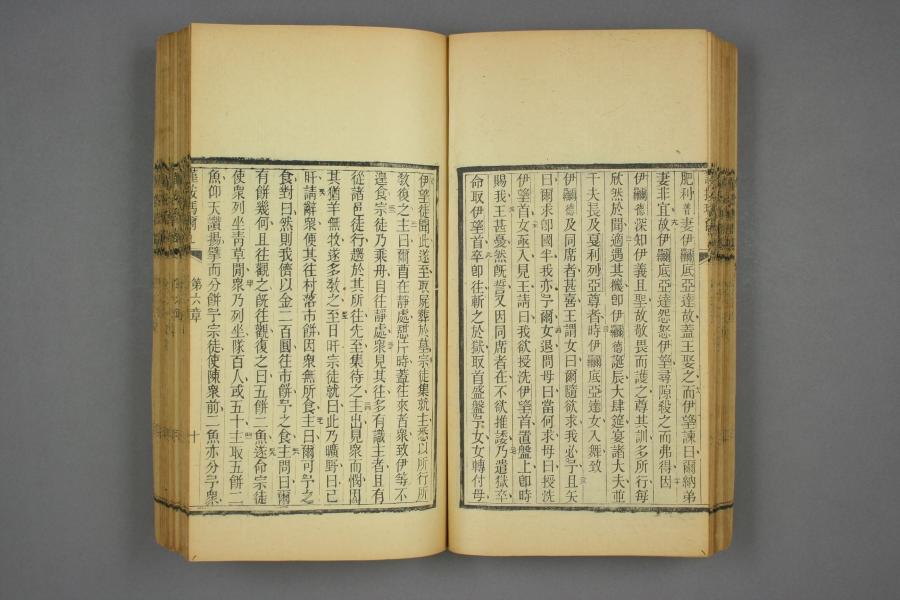 肥利普妻伊羅底亞達故蓋王娶之而伊望諫曰爾納弟
妻非宜故伊羅底亞達怨怒伊望尋隙殺之而弗得因
伊羅德深知伊義且聖故敬畏而護之尊其訓多所行每
欣然於聞適遇其機卽伊羅德誕辰大肆筵宴諸大夫並
千夫長及戛利列亞尊者時伊羅底亞達女入舞致
伊羅德及同席者甚喜王謂女曰爾隨欲求我必予且矢
曰爾求卽國半我亦予爾女退問母曰當何求母曰授洗
伊望首女亟入見王請曰我欲授洗伊望首置盤上卽時
賜我王甚憂然旣誓又因同席者在不欲推諉乃遣獄卒
命取伊望首卒卽往斬之於獄取首盛盤予女女轉付母
伊望徒聞此遂至取屍葬於墓宗徒集就主悉以所行所
敎復之主曰爾曹在靜處憩片時蓋往來者衆致伊等不
遑食宗徒乃乘舟自往靜處衆見其往多有識主者且有
從諸邑徒行趨於其所往先至集待之主出見衆而憫因
其猶羊無牧遂多敎之至日旰宗徒就曰此乃曠野曰已
旰請辭衆便其往村落市餅因衆無所食主曰爾可予之
食對曰然則我儕以金二百圓往市餅予之食主問曰爾
有餅幾何且往觀之旣往觀復之曰五餅二魚遂命宗徒
使衆列坐靑草間衆乃列坐隊百人或五十主取五餅二
魚仰天讚揚擘而分餅予宗徒使陳衆前二魚亦分予衆
第六章
十